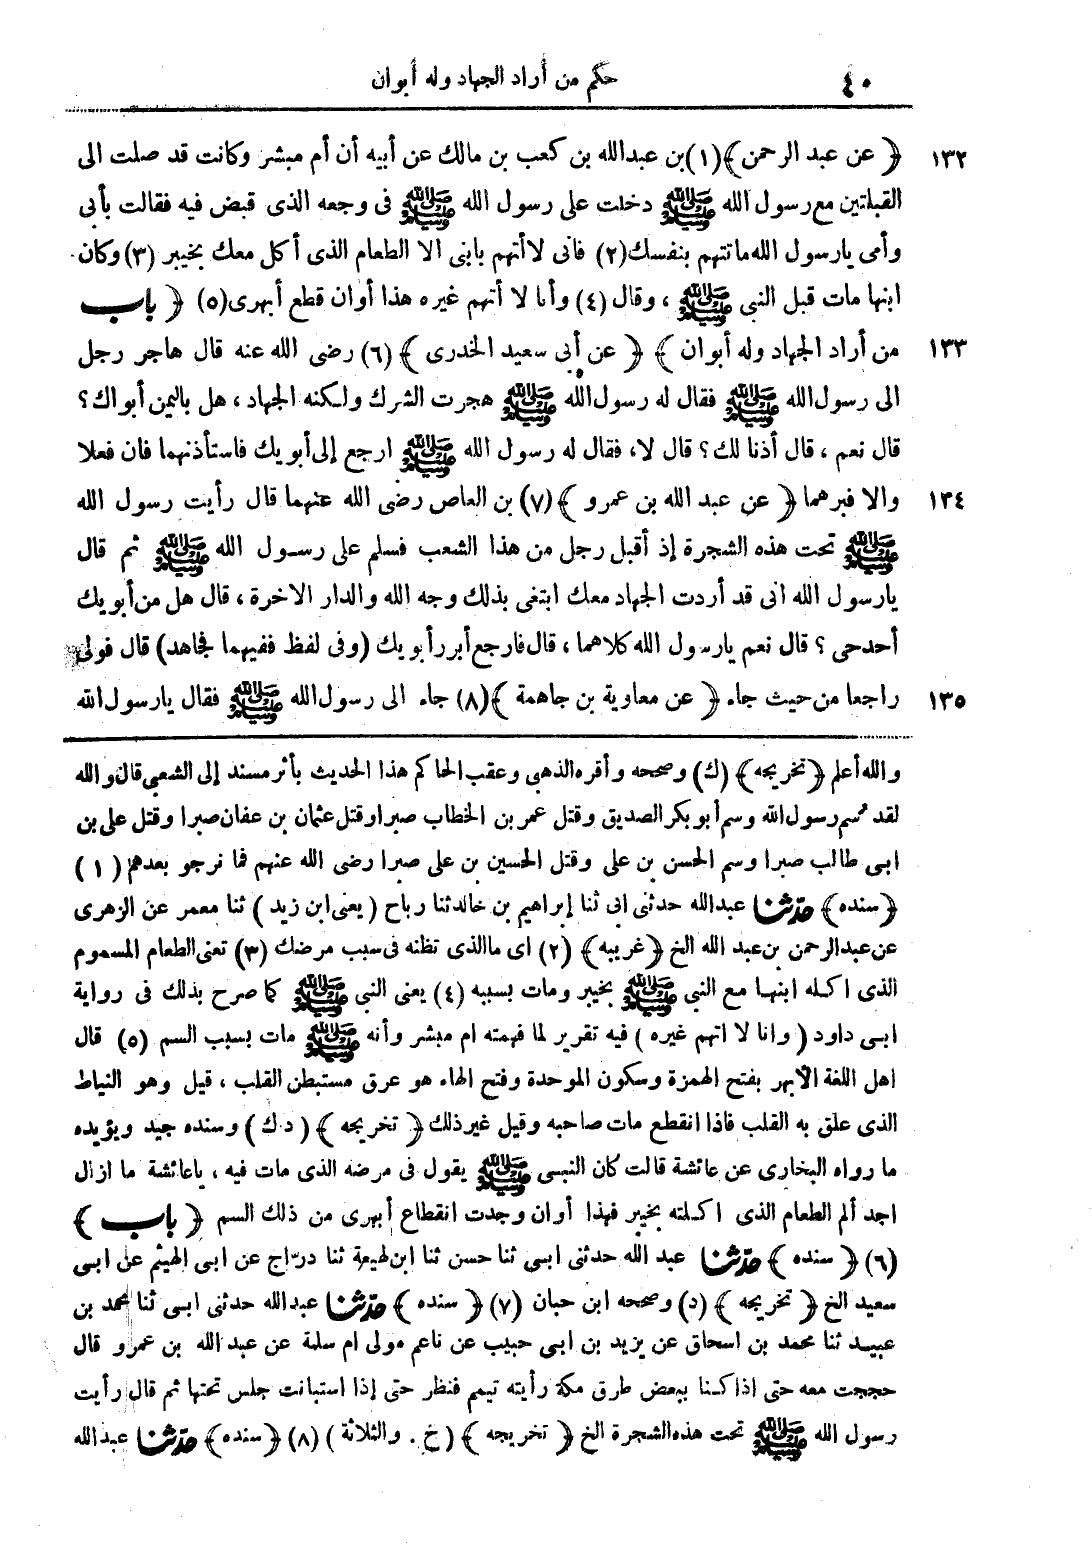 ٤٠ حكم من أراد الجهاد وله أبوان
١٣٢ ﴿ عن عبد الرحمن ﴾ (١) بن عبدالله بن كعب بن مالك عن أبيه أن أم مبشر وكانت قد صلت الى
القبلتين مع رسول الله ﷺ دخلت على رسول الله ﷺ فى وجعه الذى قبض فيه فقالت بأبى
وأمى يارسول الله ماتتهم بنفسك (٢) فانى لا أتهم بابنى الا الطعام الذى أكل معك بخيبر (٣) وكان
ابنها مات قبل النبى ﷺ ، وقال (٤) وأنا لا أتهم غيره هذا أوان قطع أبهرى (٥) ﴿ باب
١٣٣ من أراد الجهاد وله أبوان ﴾ ﴿ عن أبى سعيد الخدرى ﴾ (٦) رضى الله عنه قال هاجر رجل
الى رسول الله ﷺ فقال له رسول الله ﷺ هجرت الشرك ولكنه الجهاد ، هل باليمن أبواك؟
قال نعم ، قال أذنا لك؟ قال لا، فقال له رسول الله ﷺ ارجع إلى أبويك فاستأذنهما فان فعلا
١٣٤ والا فبرهما ﴿ عن عبد الله بن عمرو ﴾ (٧) بن العاص رضى الله عنهما قال رأيت رسول الله
ﷺ تحت هذه الشجرة إذ أقبل رجل من هذا الشعب فسلم على رسول الله ﷺ ثم قال
يارسول الله انى قد أردت الجهاد معك ابتغى بذلك وجه الله والدار الاخرة ، قال هل من أبويك
أحدحى ؟ قال نعم يارسول الله كلاهما ، قال فارجع أبرر أبويك (وفى لفظ ففيهما فجاهد) قال فولى
١٣٥ راجعا من حيث جاء ﴿ عن معاوية بن جاهمة ﴾ (٨) جاء الى رسول الله ﷺ فقال يارسول الله
والله أعلم ﴿ تخريجه ﴾ (ك) وصححه وأقره الذهبى وعقب الحاكم هذا الحديث بأثر مسند إلى الشعبى قال والله
لقد سم رسول الله وسم أبو بكر الصديق وقتل عمر بن الخطاب صبرا وقتل عثمان بن عفان صبرا وقتل على بن
ابى طالب صبرا وسم الحسن بن على وقتل الحسين بن على صبرا رضى الله عنهم فما نرجو بعدهم (١)
﴿ سنده ﴾ حدثنا عبدالله حدثنى ابى ثنا إبراهيم بن خالد ثنا رباح (يعنى ابن زيد) ثنا معمر عن الزهرى
عن عبدالرحمن بن عبد الله الخ ﴿ غريبه ﴾ (٢) اى ما الذى تظنه فى سبب مرضك (٣) تعنى الطعام المسموم
الذى اكله ابنها مع النبى ﷺ بخيبر ومات بسببه (٤) يعنى النبى ﷺ كما صرح بذلك فى رواية
ابى داود (وانا لا اتهم غيره) فيه تقرير لما فهمته ام مبشر وأنه ﷺ مات بسبب السم (٥) قال
اهل اللغة الأبهر بفتح الهمزة وسكون الموحدة وفتح الهاء هو عرق مستبطن القلب ، قيل وهو النياط
الذى علق به القلب فاذا انقطع مات صاحبه وقيل غير ذلك ﴿ تخريجه ﴾ (د ك) وسنده جيد ويؤيده
ما رواه البخارى عن عائشة قالت كان النبى ﷺ يقول فى مرضه الذى مات فيه ، ياعائشة ما ازال
اجد ألم الطعام الذى اكلته بخيبر فهذا أوان وجدت انقطاع أبهرى من ذلك السم ﴿ باب ﴾
(٦) ﴿ سنده ﴾ حدثنا عبد الله حدثنى ابى ثنا حسن ثنا ابن لهيعة ثنا درّاج عن ابى الهيثم عن ابى
سعيد الخ ﴿ تخريجه ﴾ (د) وصححه ابن حبان (٧) ﴿ سنده ﴾ حدثنا عبدالله حدثنى ابى ثنا محمد بن
عبيد ثنا محمد بن اسحاق عن يزيد بن ابى حبيب عن ناعم مولى ام سلمة عن عبد الله بن عمرو قال
حججت معه حتى اذا كنا ببعض طرق مكة رأيته تيمم فنظر حتى إذا استبانت جلس تحتها ثم قال رأيت
رسول الله ﷺ تحت هذه الشجرة الخ ﴿ تخريجه ﴾ (خ . والثلاثة) (٨) ﴿ سنده ﴾ حدثنا عبدالله